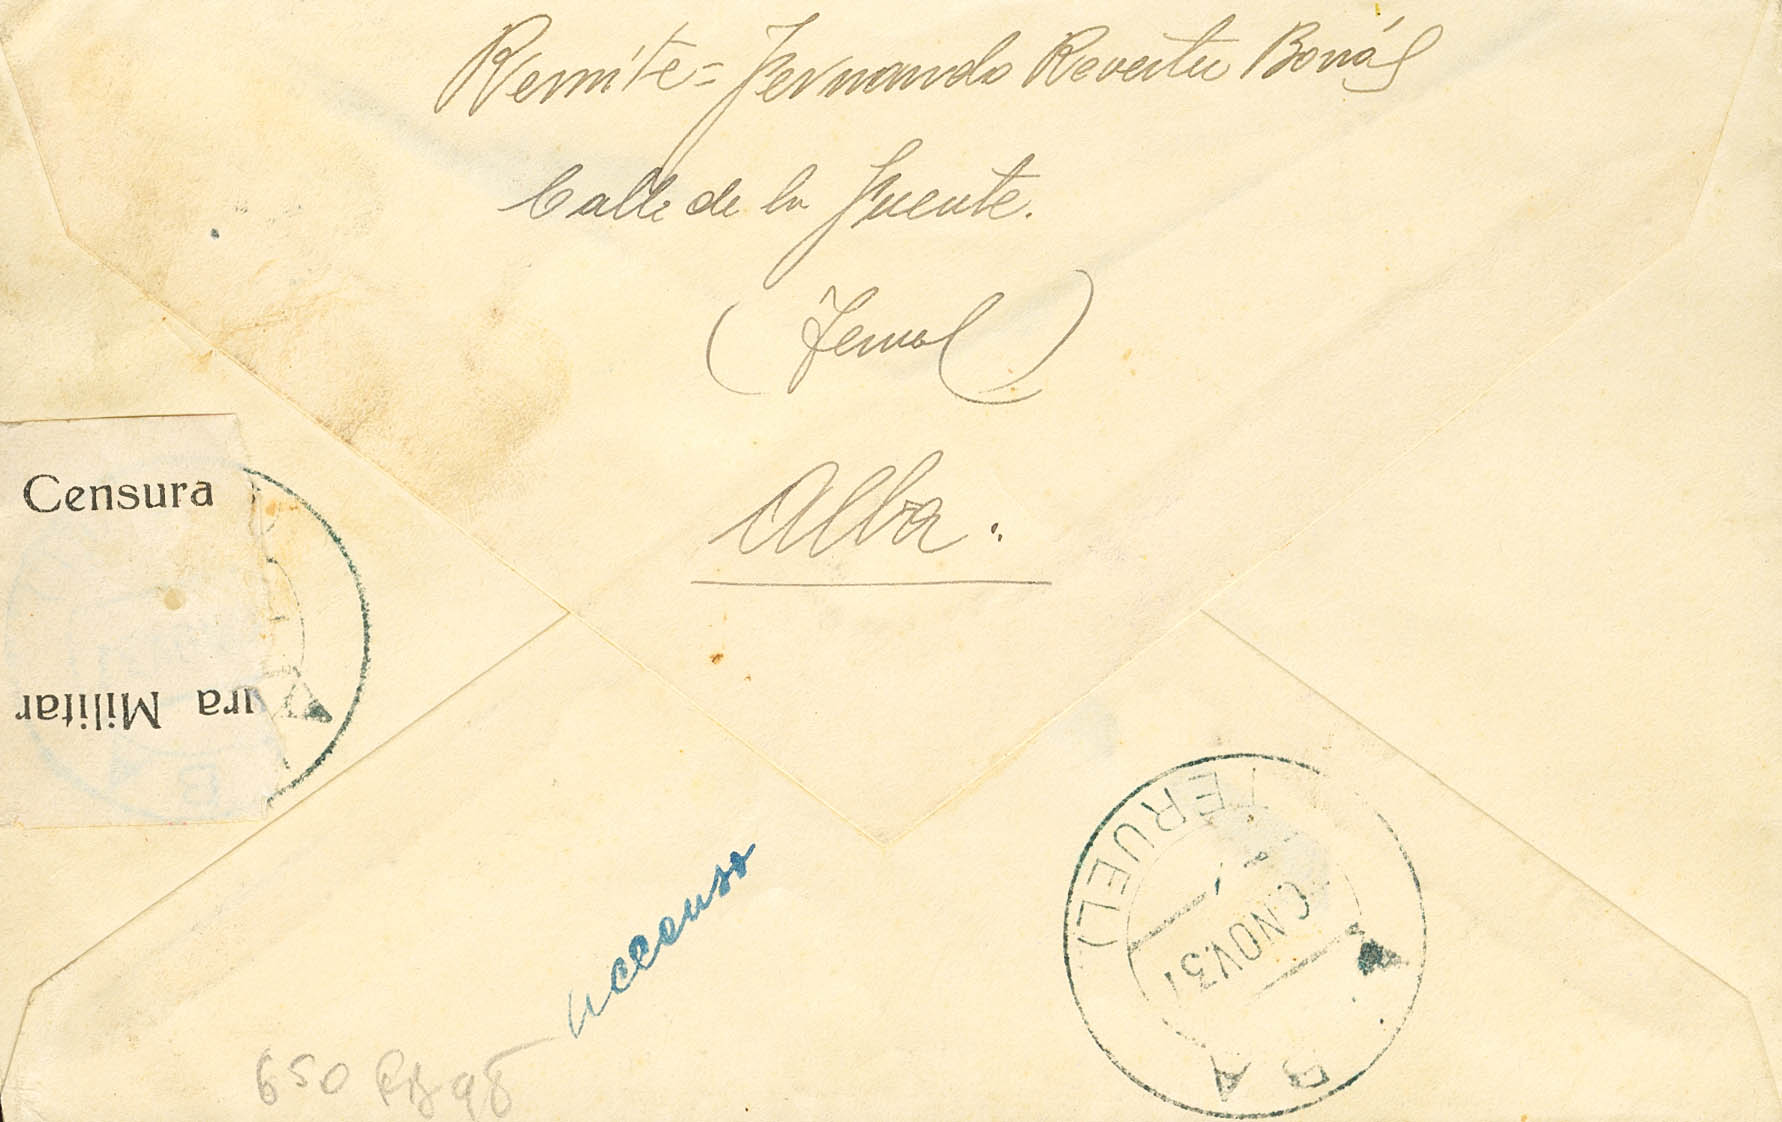 Remite = Fernando Reverter Borrás
Calle de la Fuente.
(Teruel)
Alba.
Censura
ura Militar
(TERUEL)
NOV.37
650